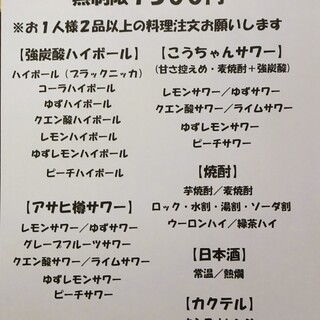 ※お１人様２品以上の料理注文お願いします
【強炭酸ハイボール】
ハイボール（ブラックニッカ）
コーラハイボール
ゆずハイボール
クエン酸ハイボール
レモンハイボール
ゆずレモンハイボール
ピーチハイボール
【アサヒ樽サワー】
レモンサワー／ゆずサワー
グレープフルーツサワー
クエン酸サワー／ライムサワー
ゆずレモンサワー
ピーチサワー
【こうちゃんサワー】
（甘さ控えめ・麦焼酎＋強炭酸）
レモンサワー／ゆずサワー
クエン酸サワー／ライムサワー
ゆずレモンサワー
【焼酎】
芋焼酎／麦焼酎
ロック・水割・湯割・ソーダ割
ウーロンハイ／緑茶ハイ
【日本酒】
常温／熱燗
【カクテル】